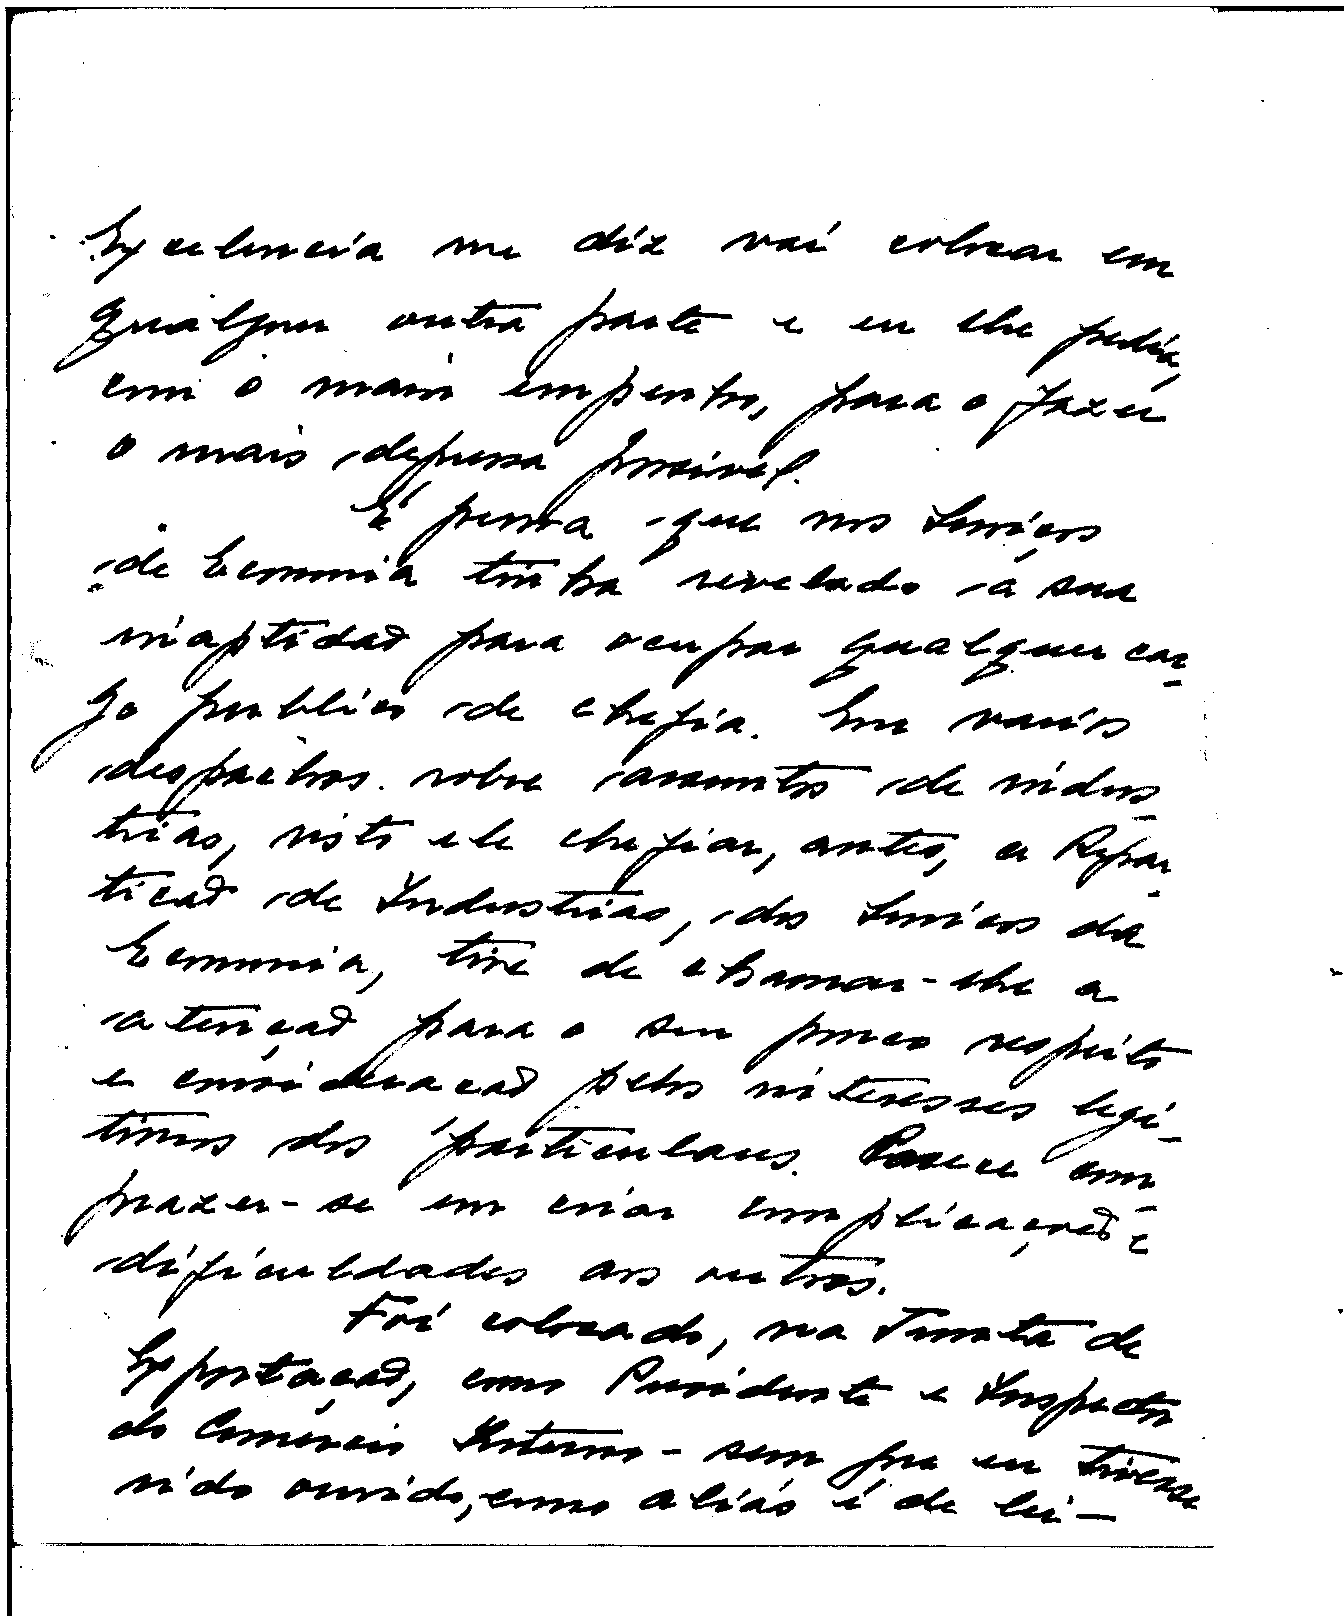 Excelencia me diz vai colocar em
qualquer outra parte e eu lhe pedia,
com o maior empenho, para o fazer
o mais depressa possivel.
É pessoa que nos Serviços
de Economia tinha revelado a sua
inaptidaõ para ocupar qualquer car-
go publico de chefia. Em varios
despachos sobre assuntos de indus-
trias, visto ele chefiar, antes, a Repar-
ticaõ de Industrias, dos Servicos da
Economia, tive de chamar-lhe a
atençaõ para o seu pouco respeito
e consideracaõ pelos interesses legi-
timos dos particulares. Parece com-
prazer-se em criar complicaçoẽs e
dificuldades aos outros.
Foi colocado, na Junta de
Exportaçaõ, como Presidente e Inspector
do Comércio Externo - sem que eu tivesse
sido ouvido, como aliás é de lei -